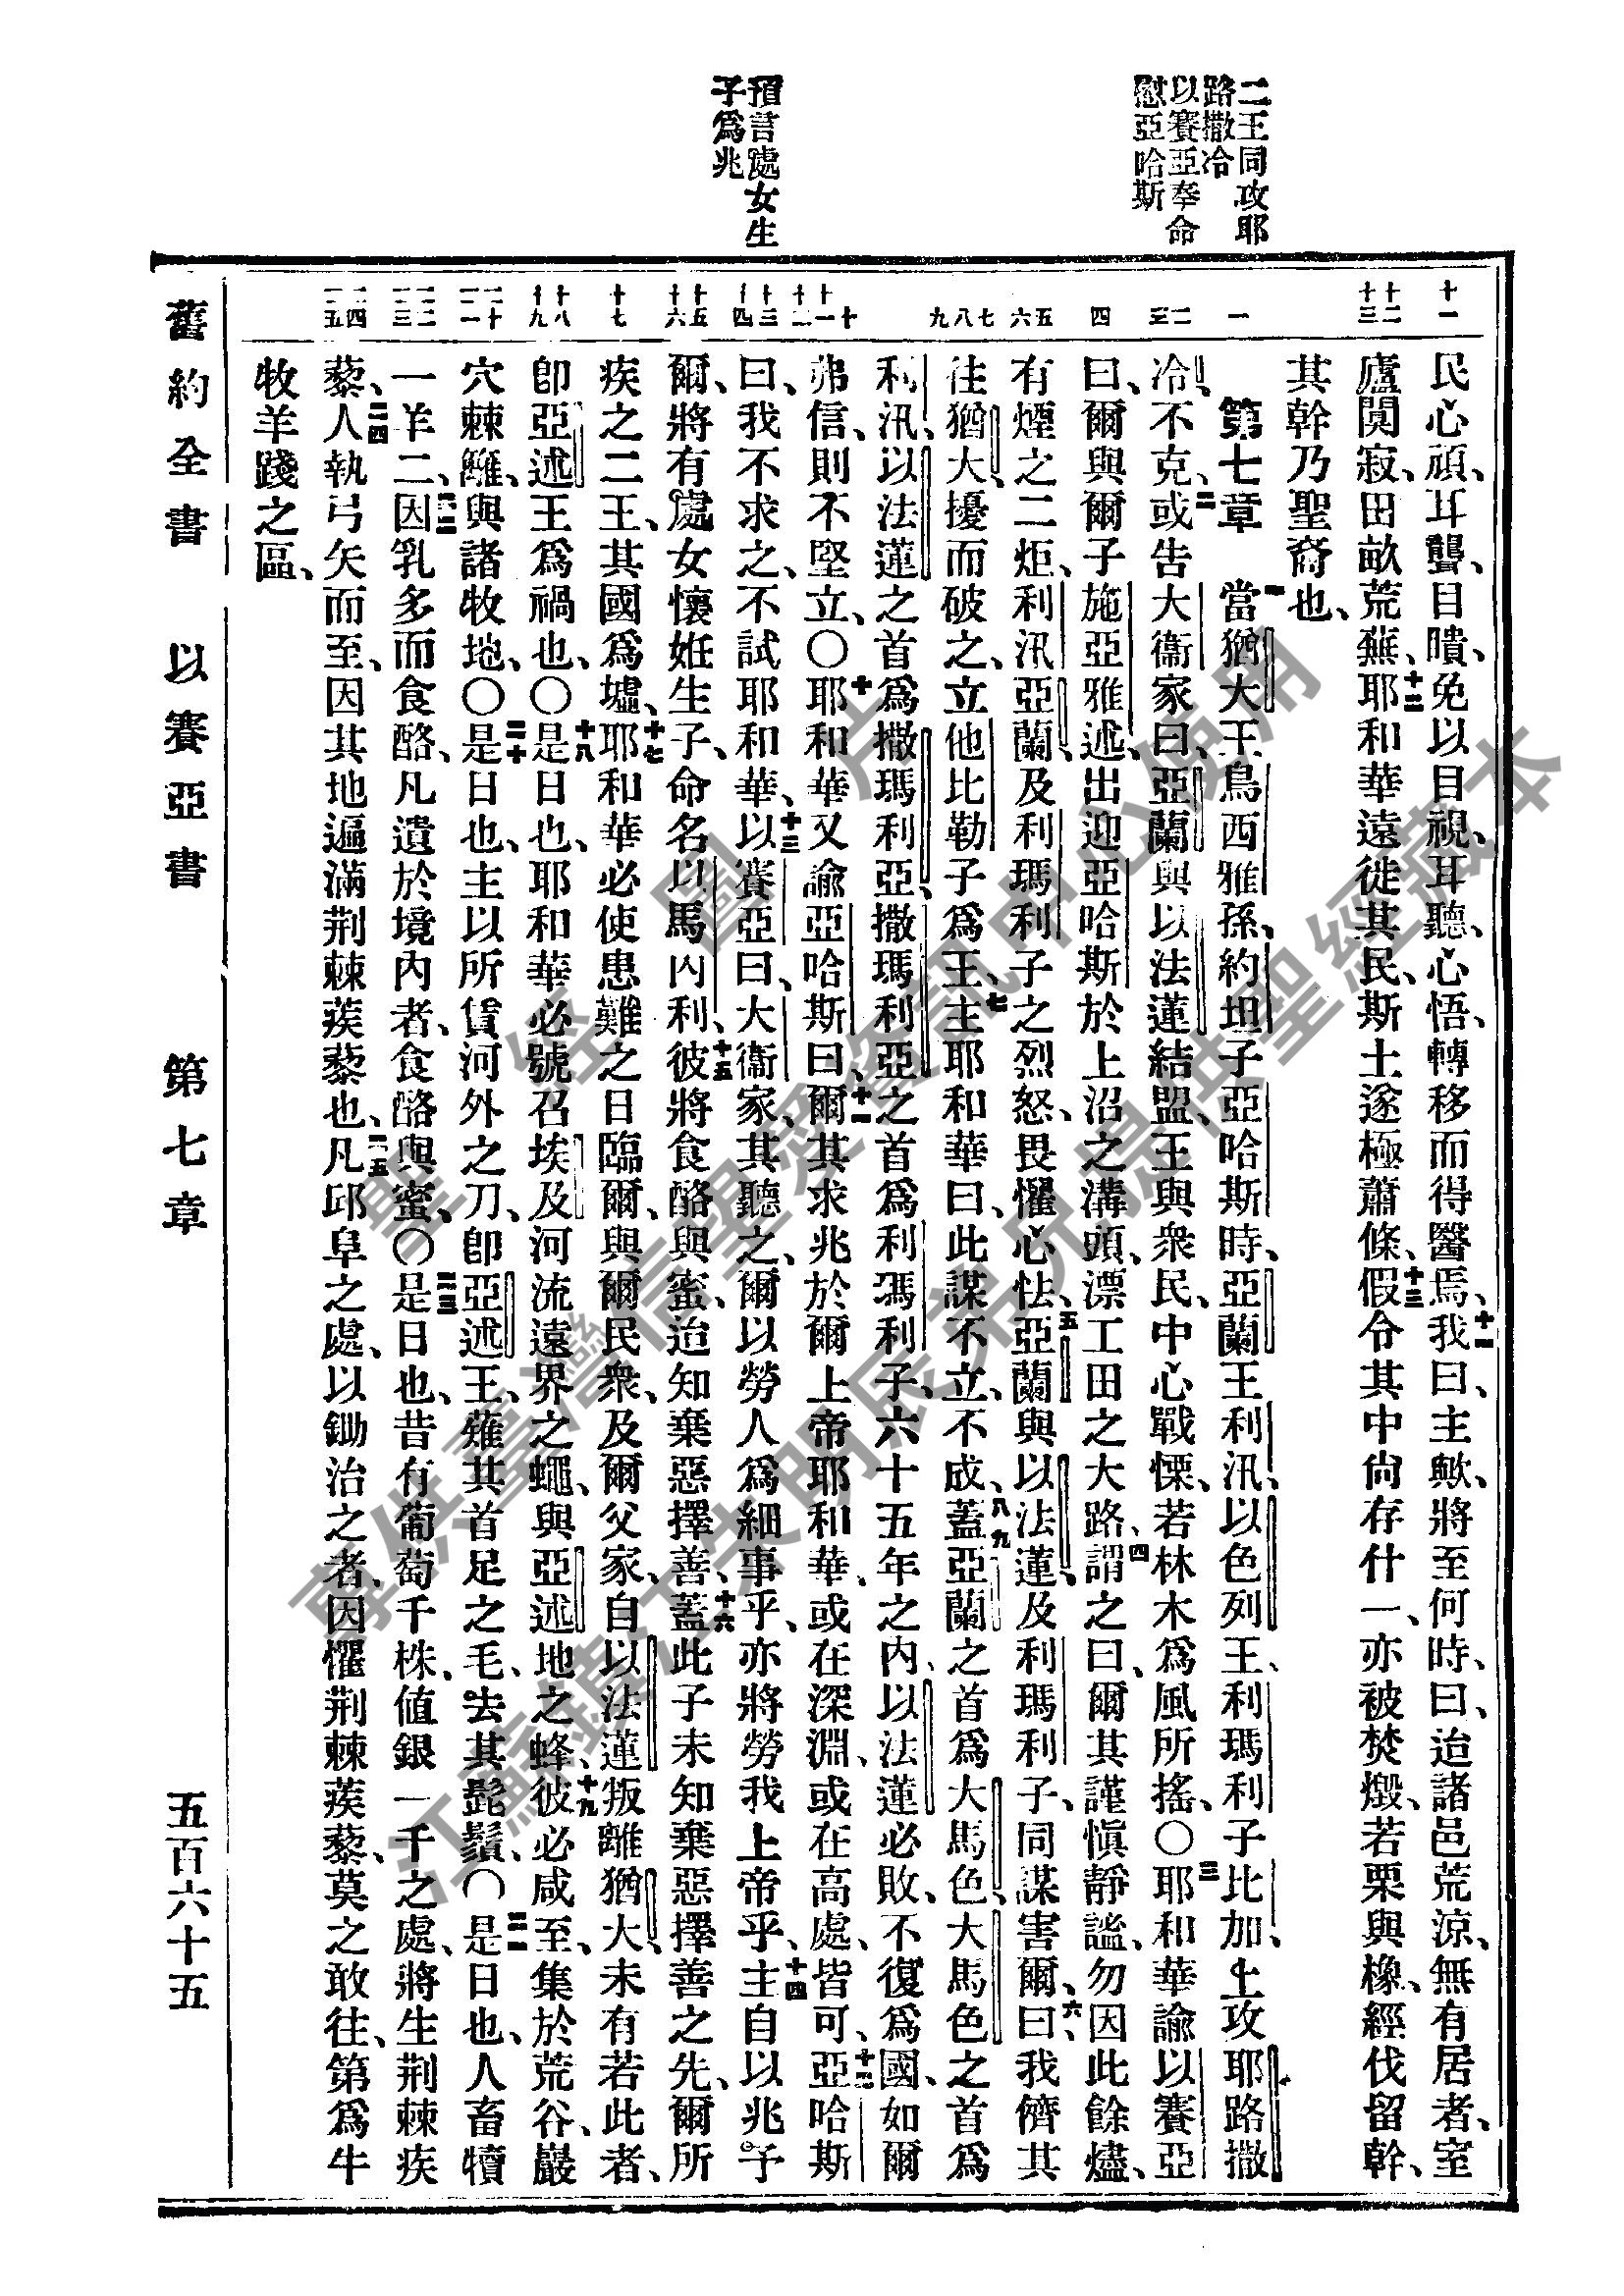 二王同攻耶
路撒冷
以賽亞奉命
慰亞哈斯
預言處女生
子爲兆
十一
十二
十三
一
二
三
四
五
六
七
八
九
十
十一
十二
十三
十四
十五
十六
十七
十八
十九
二十
二一
二二
二三
二四
二五
民心頑、耳聾、目瞶、免以目視、耳聽、心悟、轉移而得醫焉、十一我曰、主歟、將至何時、曰、迨諸邑荒涼、無有居者、室
廬闃寂、田畝荒蕪、十二耶和華遠徙其民、斯土遂極蕭條、十三假令其中尙存什一、亦被焚燬、若栗與橡、經伐留幹、
其幹乃聖裔也、
第七章 一當猶大王烏西雅孫、約坦子亞哈斯時、亞蘭王利汛、以色列王、利瑪利子比加、上攻耶路撒
冷、不克、二或告大衞家曰、亞蘭與以法蓮結盟、王與衆民、中心戰慄、若林木爲風所搖、〇三耶和華諭以賽亞
曰、爾與爾子施亞雅述、出迎亞哈斯於上沼之溝頭、漂工田之大路、四謂之曰、爾其謹愼靜謐、勿因此餘燼、
有煙之二炬、利汛亞蘭、及利瑪利子之烈怒、畏懼心怯、五亞蘭與以法蓮、及利瑪利子、同謀害爾、曰、六我儕其
往猶大、擾而破之、立他比勒子爲王、七主耶和華曰、此謀不立、不成、八九蓋亞蘭之首爲大馬色、大馬色之首爲
利汛、以法蓮之首爲撒瑪利亞、撒瑪利亞之首爲利瑪利子、六十五年之內、以法蓮必敗、不復爲國、如爾
弗信、則不堅立、〇十耶和華又諭亞哈斯曰、十一爾其求兆於爾上帝耶和華、或在深淵、或在高處、皆可、十二亞哈斯
曰、我不求之、不試耶和華、十三以賽亞曰、大衞家、其聽之、爾以勞人爲細事乎、亦將勞我上帝乎、十四主自以兆予
爾、將有處女懷姙生子、命名以馬內利、十五彼將食酪與蜜、迨知棄惡擇善、十六蓋此子未知棄惡擇善之先、爾所
疾之二王、其國爲墟、十七耶和華必使患難之日臨爾、與爾民衆、及爾父家、自以法蓮叛離猶大、未有若此者、
卽亞述王爲禍也、〇十八是日也、耶和華必號召埃及河流遠界之蠅、與亞述地之蜂、十九彼必咸至、集於荒谷、巖
穴棘籬、與諸牧地、〇二十是日也、主以所賃河外之刀、卽亞述王、薙其首足之毛、去其髭鬚、〇二一是日也、人畜犢
一羊二、二二因乳多而食酪、凡遺於境內者、食酪與蜜、〇二三是日也、昔有葡萄千株、値銀一千之處、將生荆棘疾
藜、二四人執弓矢而至、因其地遍滿荆棘蒺藜也、二五凡邱阜之處、以鋤治之者、因懼荆棘蒺藜、莫之敢往、第爲牛
牧羊踐之區、
舊約全書 以賽亞書 第七章 五百六十五
聖經圖片
專供臺灣信望愛資訊中心使用
江蘇鎮江朱明辰弟兄提供聖經藏本